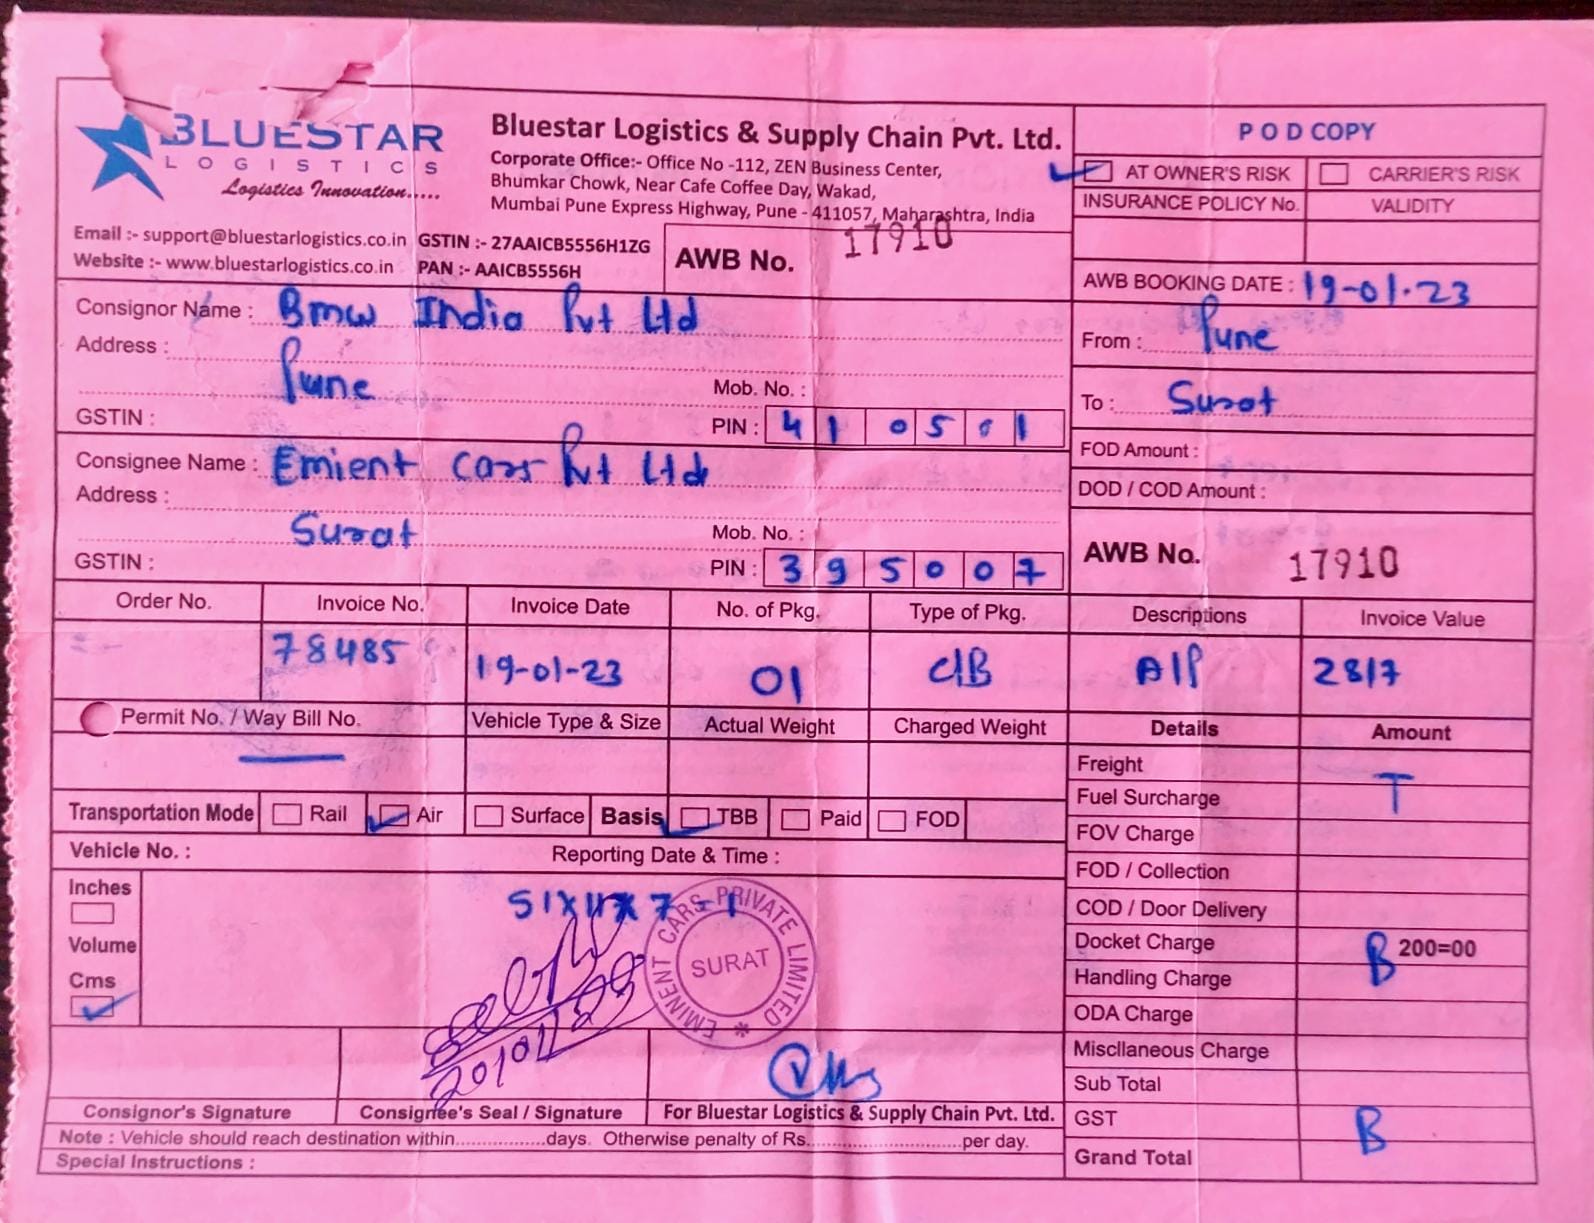 BLUESTAR
LOGISTICS
Logistics Innovation.....
Bluestar Logistics & Supply Chain Pvt. Ltd.
Corporate Office:- Office No -112, ZEN Business Center,
Bhumkar Chowk, Near Cafe Coffee Day, Wakad,
Mumbai Pune Express Highway, Pune - 411057, Maharashtra, India
Email :- support@bluestarlogistics.co.in GSTIN :- 27AAICB5556H1ZG
Website :- www.bluestarlogistics.co.in PAN :- AAICB5556H
AWB No. 17910
POD COPY
AT OWNER'S RISK CARRIER'S RISK
INSURANCE POLICY No. VALIDITY
AWB BOOKING DATE : 19-01-23
Consignor Name : Bmw India Pvt Ltd
Address :
Pune Mob. No. :
GSTIN : PIN : 410501
From : Pune
To : Surat
Consignee Name : Emient Cars Pvt Ltd
Address :
Surat Mob. No. :
GSTIN : PIN : 395007
FOD Amount :
DOD / COD Amount :
AWB No. 17910
Order No. Invoice No. Invoice Date No. of Pkg. Type of Pkg. Descriptions Invoice Value
78485 19-01-23 01 C/B A/P 2817
Permit No. / Way Bill No. Vehicle Type & Size Actual Weight Charged Weight Details Amount
Freight
Fuel Surcharge T
FOV Charge
FOD / Collection
COD / Door Delivery
Docket Charge B 200=00
Handling Charge
ODA Charge
Miscllaneous Charge
Sub Total
GST B
Grand Total
Transportation Mode Rail Air Surface Basis TBB Paid FOD
Vehicle No. : Reporting Date & Time :
Inches
Volume
Cms
51X11X7-1
EMINENT CARS PRIVATE LIMITED
SURAT
20/01/23
Consignor's Signature Consignee's Seal / Signature For Bluestar Logistics & Supply Chain Pvt. Ltd.
Note : Vehicle should reach destination within.................days. Otherwise penalty of Rs............................per day.
Special Instructions :